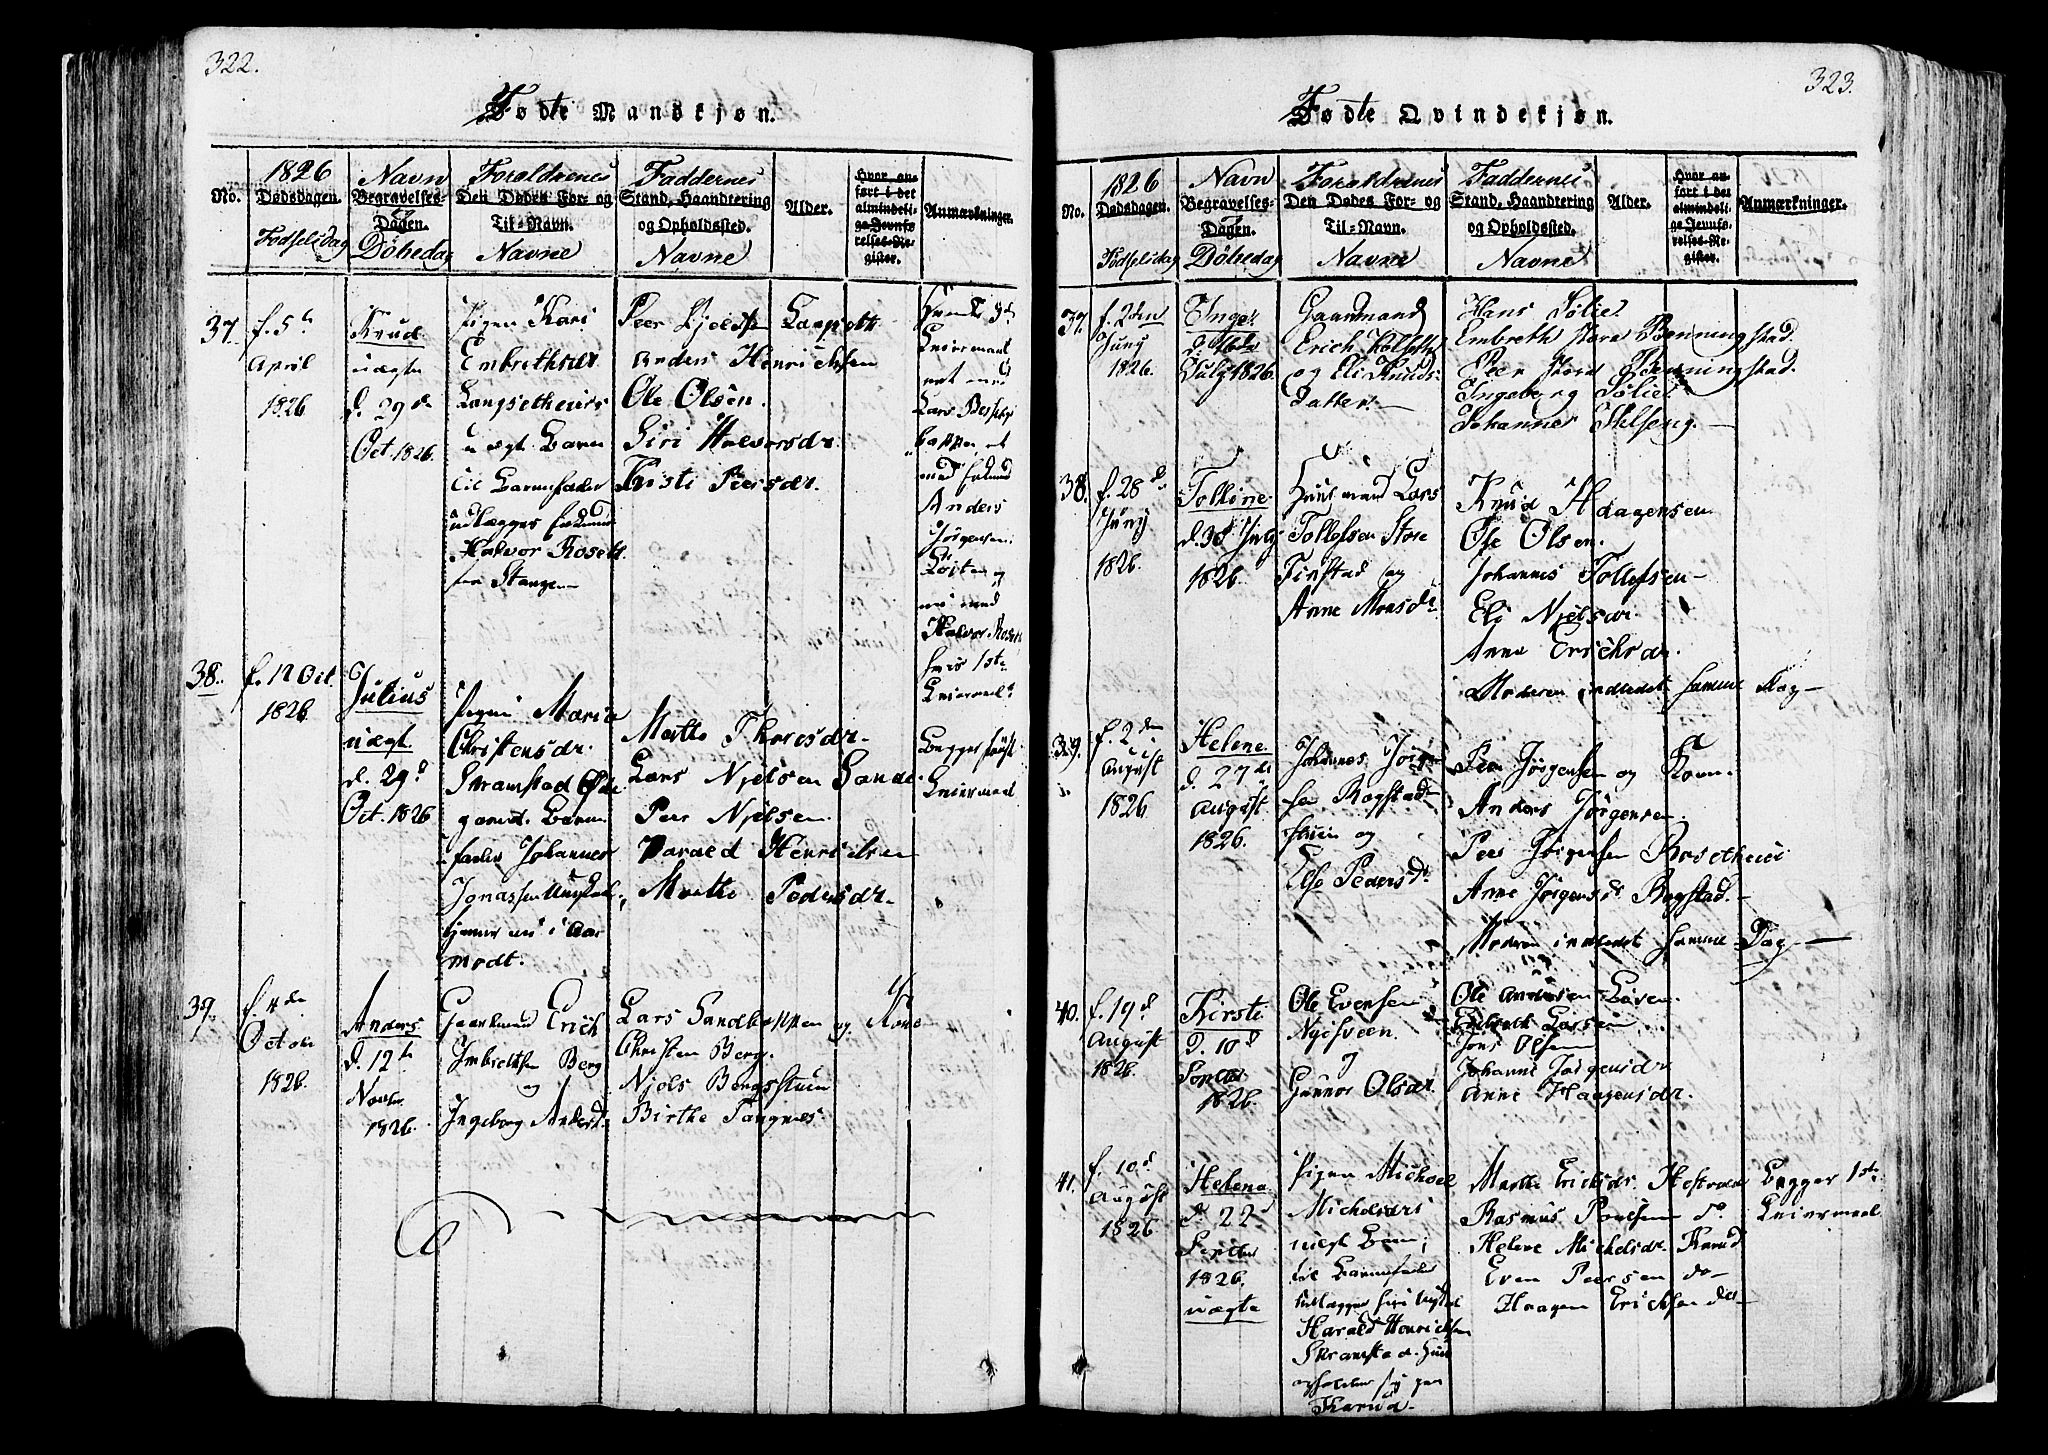 322.
Fødte Mandkjøn.
No.
1826
Dødsdagen.
Fødselsdag
Navn
Begravelses-
Dagen.
Døbedag
Foraldrenes
Den Dødes For- og
Til-Navn.
Navne
Faddernes
Stand, Haandtering
og Opholdssted.
Navne
Alder.
Hvor an-
ført i det
almindeli-
ge Jevnfø-
relses-Re-
gister.
Anmærkninger.
37.
f. 5te
April
1826
Knud
uægte
d. 29de
Oct. 1826.
Pigen Kari
Embrethsdr
Langsetheiers
uægt. Barn
til Barnefader
udlægges
Halvor Roseth
fra Stangen
Peer Kjelsen Langseth
Anders Henrichsen
Ole Olsen.
Siri Halvorsdr.
Kristi Peersdr.
Anders
Jørgensen
Halvor Roseth
hans 1ste
Leiermaal
38.
f. 12 Oct.
1826.
Julius
uægt.
d. 29d
Oct. 1826
Pigen Maria
Christensdr.
Skramstad
Barne
fader Johannes
Jonassen
tjener nu i Aa
modt.
Marthe Thoresdr.
Lars Njelsen Sande
Peer Njelsen.
Harald Henrichsen
Marthe Pedersdr.
Begges første
Leiermaal
39.
f. 4de
October
1826.
Anders
d. 12te
Novbr.
1826.
Gaardmand Erich
Imbrethsen Berg
og
Ingeborg Andersd.
Lars Sandbakken og Kone
Christen Berg.
Njels Bergsstuen
Birthe Tangnes.
323.
Fødte Qvindekjøn.
No.
1826
Dødsdagen.
Fødselsdag
Navn
Begravelses-
Dagen.
Døbedag
Foraldrenes
Den Dødes For- og
Til-Navn.
Navne
Faddernes
Stand, Haandtering
og Opholdssted.
Navne
Alder.
Hvor an-
ført i det
almindeli-
ge Jevnfø-
relses-Re-
gister.
Anmærkninger.
37.
f. 2den
Juny
1826.
Inger
July 1826.
Gaardmand
Erich Kolseth
og Eli Knuds-
datter.
Hans Sølie
Embreth Store Benningstad.
Peer Store Benningstad.
Ingeborg Sølie
Johannes Stilseng.
38.
f. 28d
Juny
1826.
Tolline
d. 30 July
1826.
Huusmand Lars
Tollefsen Store
Finstad og
Anne Monsdr
Knud Haagensen
Ole Olsen.
Johannes Tollefsen
Eli Njelsdr
Anne Erichsdr.
Moderen indledet samme Dag
39.
f. 2den
August
1826.
Helene
d. 27de
August
1826.
Johannes Jørgen
sen Rogstad
stuen og
Else Pedersdr
Peer Jørgensen og Kone.
Anders Jørgensen.
Peer Jørgensen Rosetheiet
Anne Jørgensdr Rogstad.
Moderen indledet samme Dag
40.
f. 19d
August
1826.
Kirsti
D. 10d
Septbr
1826.
Ole Evensen
Nyesveen
Gunnor Olsdr.
Ole Andersen Løsen.
Embreth Larsen
Jons Olsen
Johanne Jørgensdr
Anne Haagensdr.
41.
f. 10d
August
1826
Helena
d. 22d
Septbr
1826.
uægte
Pigen Michael
Michelsdrs
uægt Barn;
til Barnefader
udlægges
Harald Henrichsen
Skramstad
opholder sig paa
Karud
Marthe Erichsdr.
Rasmus Poulsen do
Helene Michelsdr. Karud
Even Peersen do
Haagen Erichsen do
Begges 1ste
Leiermaal